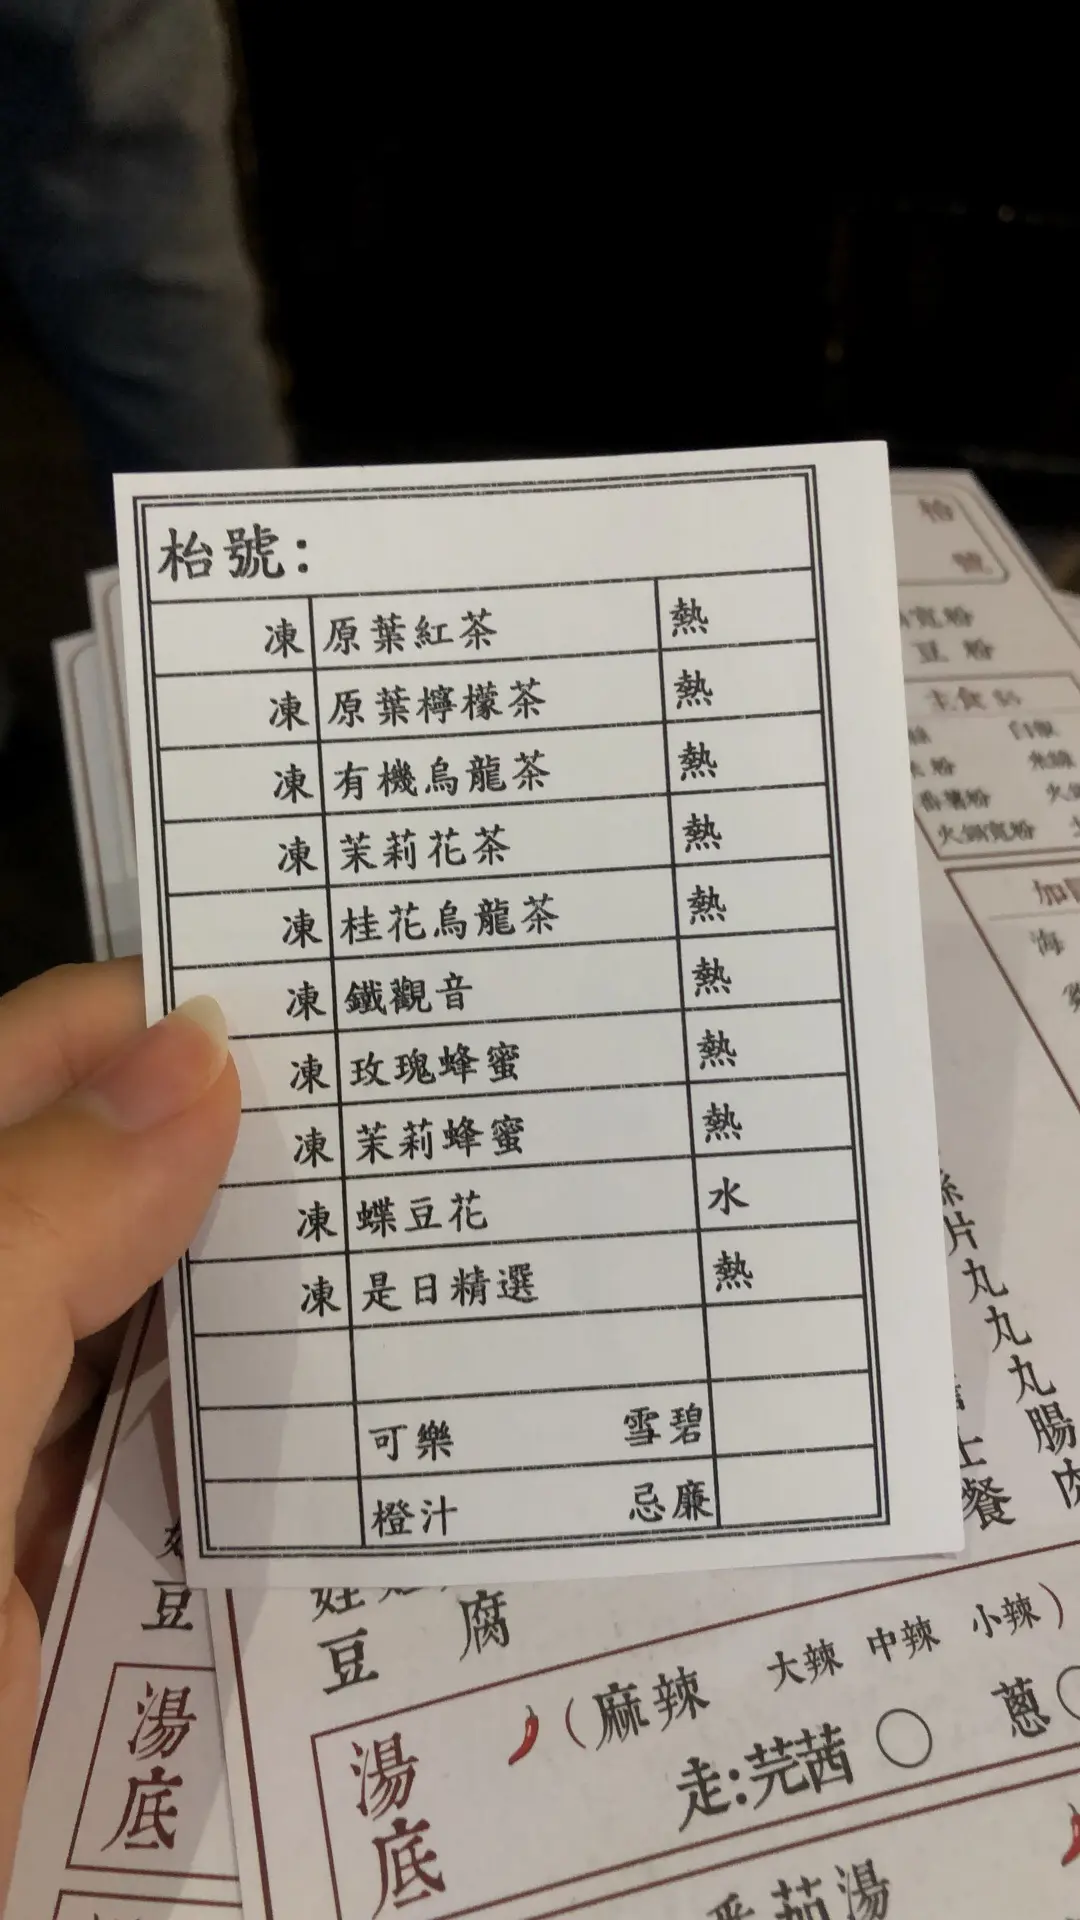 枱號：
凍 原葉紅茶 熱
凍 原葉檸檬茶 熱
凍 有機烏龍茶 熱
凍 茉莉花茶 熱
凍 桂花烏龍茶 熱
凍 鐵觀音 熱
凍 玫瑰蜂蜜 熱
凍 茉莉蜂蜜 熱
凍 蝶豆花 水
凍 是日精選 熱
可樂 雪碧
橙汁 忌廉
枱
號
寬粉
豆粉
主食
白飯
粉 米線
番薯粉 火
火鍋寬粉
加
海
片
丸
丸
丸
腸
餐 肉
豆
豆 腐
湯
底
湯
底
(麻辣 大辣 中辣 小辣)
走:芫茜 ○ 蔥 ○
茄湯